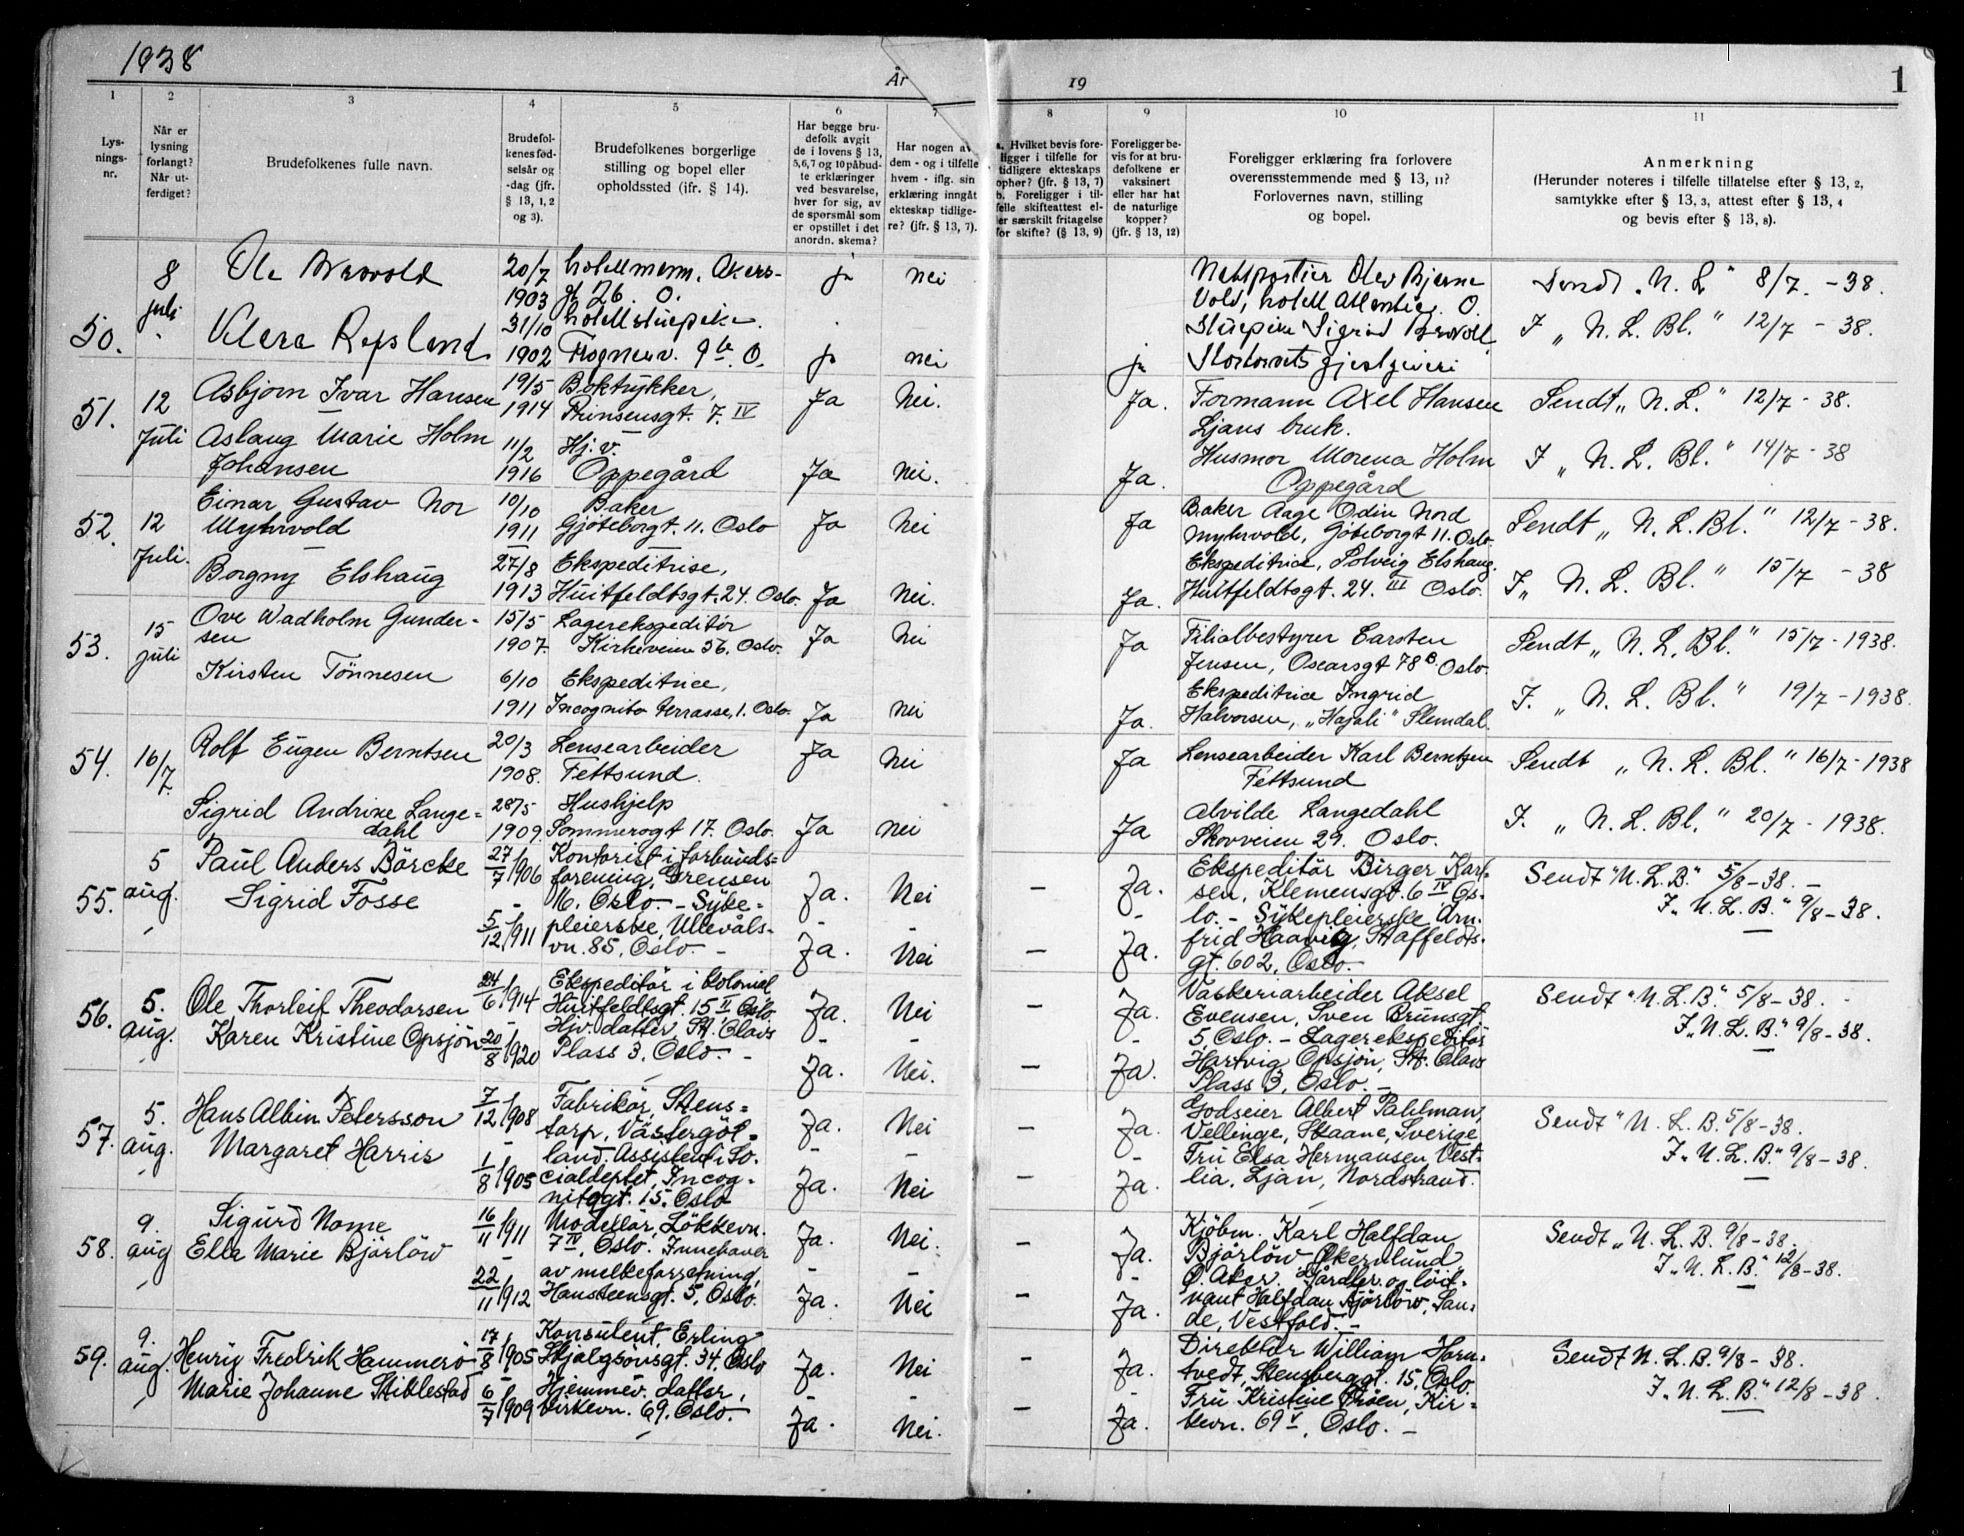 1938
År
19
1
1
2
3
4
5
6
7
8
9
10
11
Lys-
nings-
nr.
Når er
lysning
forlangt?
Når ut-
ferdiget?
Brudefolkenes fulle navn.
Brudefol-
kenes fød-
selsår og
-dag (jfr.
§ 13, 1, 2
og 3).
Brudefolkenes borgerlige
stilling og bopel eller
opholdssted (jfr. § 14).
Har begge bru-
defolk avgit
de i lovens § 13,
5,6,7 og 10 påbud-
te erklæringer
ved besvarelse,
hver for sig, av
de spørsmål som
er opstillet i det
anordn. skema?
Har nogen av
dem - og i tilfelle
hvem - iflg. sin
erklæring inngåt
ekteskap tidlige-
re? (jfr. § 13, 7).
a. Hvilket bevis fore-
ligger i tilfelle for
tidligere ekteskaps
ophør? (jfr. § 13, 7)
b. Foreligger i til-
felle skifteattest el-
ler særskilt fritagelse
for skifte? (§ 13, 9)
Foreligger be-
vis for at bru-
defolkene er
vaksinert
eller har hat
de naturlige
kopper?
(jfr. § 13, 12)
Foreligger erklæring fra forlovere
overensstemmende med § 13, 11?
Forlovernes navn, stilling
og bopel.
Anmerkning
(Herunder noteres i tilfelle tillatelse efter § 13, 2,
samtykke efter § 13, 3, attest efter § 13, 4
og bevis efter § 13, 8).
50.
8
juli
Ole
20/7
1903
hotellmann, Akers-
gt 26. O.
ja
nei
Olav Bjarne
Vold, hotell Atlantic. O.
Sendt „N. L" 8/7. - 38.
31/10
1902
hotellstuepike.
Frognerv. 9 O.
ja
nei
ja
Stuepike Sigrid
Stortorvets gjestgiveri
I „ N. L. Bl. " 12/7 - 38.
51.
12
Juli
Asbjørn Ivar Hansen
19/5
1914
Boktrykker,
Prinsensgt. 7. IV
Ja
Nei.
Ja.
Formann Axel Hansen
Ljans bruk.
Sendt „ N. L. " 12/7 - 38.
Aslaug Marie Holm
Johansen
11/2
1916
Hj. v.
Oppegård
Ja
Nei.
Ja.
Husmor Morena Holm
Oppegård
I „ N. L. Bl. " 14/7 - 38
52.
12
Juli.
Einar Gustav Nor
Myhrvold
10/10
1911
Baker
Gjøteborgt. 11. Oslo
Ja
Nei
Ja
Baker Aage Odin Nord
Myhrvold, Göteborgt 11. Oslo.
Sendt „ N. L. Bl. " 12/7 - 38.
Borgny Elshaug
27/8
1913
Ekspeditrise,
Huitfeldtsgt. 24. Oslo.
Ja
Nei.
Ja.
Ekspeditrice, Solveig Elshaug.
Huitfeldtsgt. 24. III Oslo.
I „ N. L. Bl. " 15/7 - 38
53.
15
juli
Ove Wadholm Gunder-
sen
15/5
1907.
Lagerekspeditör
Kirkeveien 56. Oslo.
Ja
Nei
Ja
Filialbestyrer Carsten
Jensen, Oscarsgt 78B Oslo.
Sendt „ N. L. Bl. " 15/7 - 1938.
Kirsten Tönnesen
6/10
1911
Ekspeditrice,
Incognito terrasse, 1. Oslo.
Ja
Nei
Ja.
Ekspeditrice Ingrid
Halvorsen, „Hajali" Slemdal.
I. „ N. L. Bl. " 19/7 - 1938.
54.
16/7.
Rolf Eugen Berntsen
20/3
1908.
Lensearbeider
Fettsund.
Ja
Nei
Ja
Lensearbeider Karl Berntsen
Fettsund
Sendt „ N. L. Bl. " 16/7 - 1938
Sigrid Andrine Lange-
dahl
28/5
1909.
Hushjelp
Sommerogt 17. Oslo.
Ja
Nei
Ja
Alvilde Langedahl
Skovveien 29. Oslo.
I. „ N. L. Bl. " 20/7 - 1938.
55.
5
aug.
Paul Anders Börcke
Sigrid Fosse
27/7 1906
5/12 1911
Kontorist i forbunds-
forening, Grensen
16. Oslo. - Syke-
pleierske, Ullevåls-
vn. 85, Oslo. -
Ja.
Ja.
Nei
Nei
-
-
Ja.
Ja.
Ekspeditör Birger Karl-
sen, Klemensgt. 6 IV Os-
lo. - Sykepleierske Arn-
frid Haavig, Staffeldts-
gt. 602, Oslo.-
Sendt "N. L. B." 5/8-38. -
I „N. L. B." 9/8-38.
56.
5.
aug.
Ole Thorleif Theodorsen
Karen Kristine Opsjön
24/6 1914
20/8 1920
Ekspeditör i kolonial
Huitfeldtsgt. 15 II Oslo
Hjv. datter St. Olavs
Plass 3, Oslo. -
Ja.
Ja.
Nei
Nei.
-
-
Ja.
Ja.
Vaskeriarbeider Aksel
Evensen, Sven Brunsgt.
5, Oslo. - Lagerekspeditör
Hartvig Opsjön, St. Olavs
Plass 3, Oslo. -
Sendt "N. L. B." 5/8-38.
I „N. L. B." 9/8-38.
57.
5.
aug.
Hans Albin Petersson
Margaret Harris
7/12 1908
1/8 1905
Fabrikör, Stens-
torp, Västergöt-
land. Assistent i So-
cialdeptet, Incog-
nitogt. 15, Oslo
Ja.
Ja.
Nei
Nei
-
-
Ja.
Ja.
Godseier Albert Pahlman,
Vellinge, Skaane, Sverige
Fru Elsa Hermansen Vest-
lia, Ljan, Nordstrand.
Sendt "N. L. B. 5/8-38.
I „N. L. B." 9/8-38.
58.
9.
aug
Sigurd Nome
Ella Marie Bjørløw
16/11 1911
22/11 1912
Modellör, Lökkevn.
7 IV, Oslo. Innehaver
av melkeforretning,
Hansteensgt. 5, Oslo.
Ja.
Ja.
Nei.
Nei
-
-
Ja.
Ja.
Kjøbm. Karl Halfdan
Bjørløw Økernlund
Ø. Aker. Gårdbr. og löit-
nant Halfdan Bjørløw, San-
de, Vestfold. -
Sendt „N. L. B. 9/8-38.
I „N. L. B." 12/8-38.
59.
9.
aug.
Henry Fredrik Hammerö
Marie Johanne Stiklestad
17/8 1905
6/7 1909
Konsulent, Erling
Skjalgsönsgt. 34. Oslo
Hjemmev. datter,
Kirkevn. 69. Oslo.
Ja.
Ja.
Nei
Nei.
-
-
Ja.
Ja.
Direktör William Horn-
tvedt, Stensberggt. 15, Oslo.
Fru Kristine Öien, Kir-
kevn. 69 V, Oslo. -
Sendt N. L. B. 9/8 - 38.
I „N. L. B." 12/8-38.